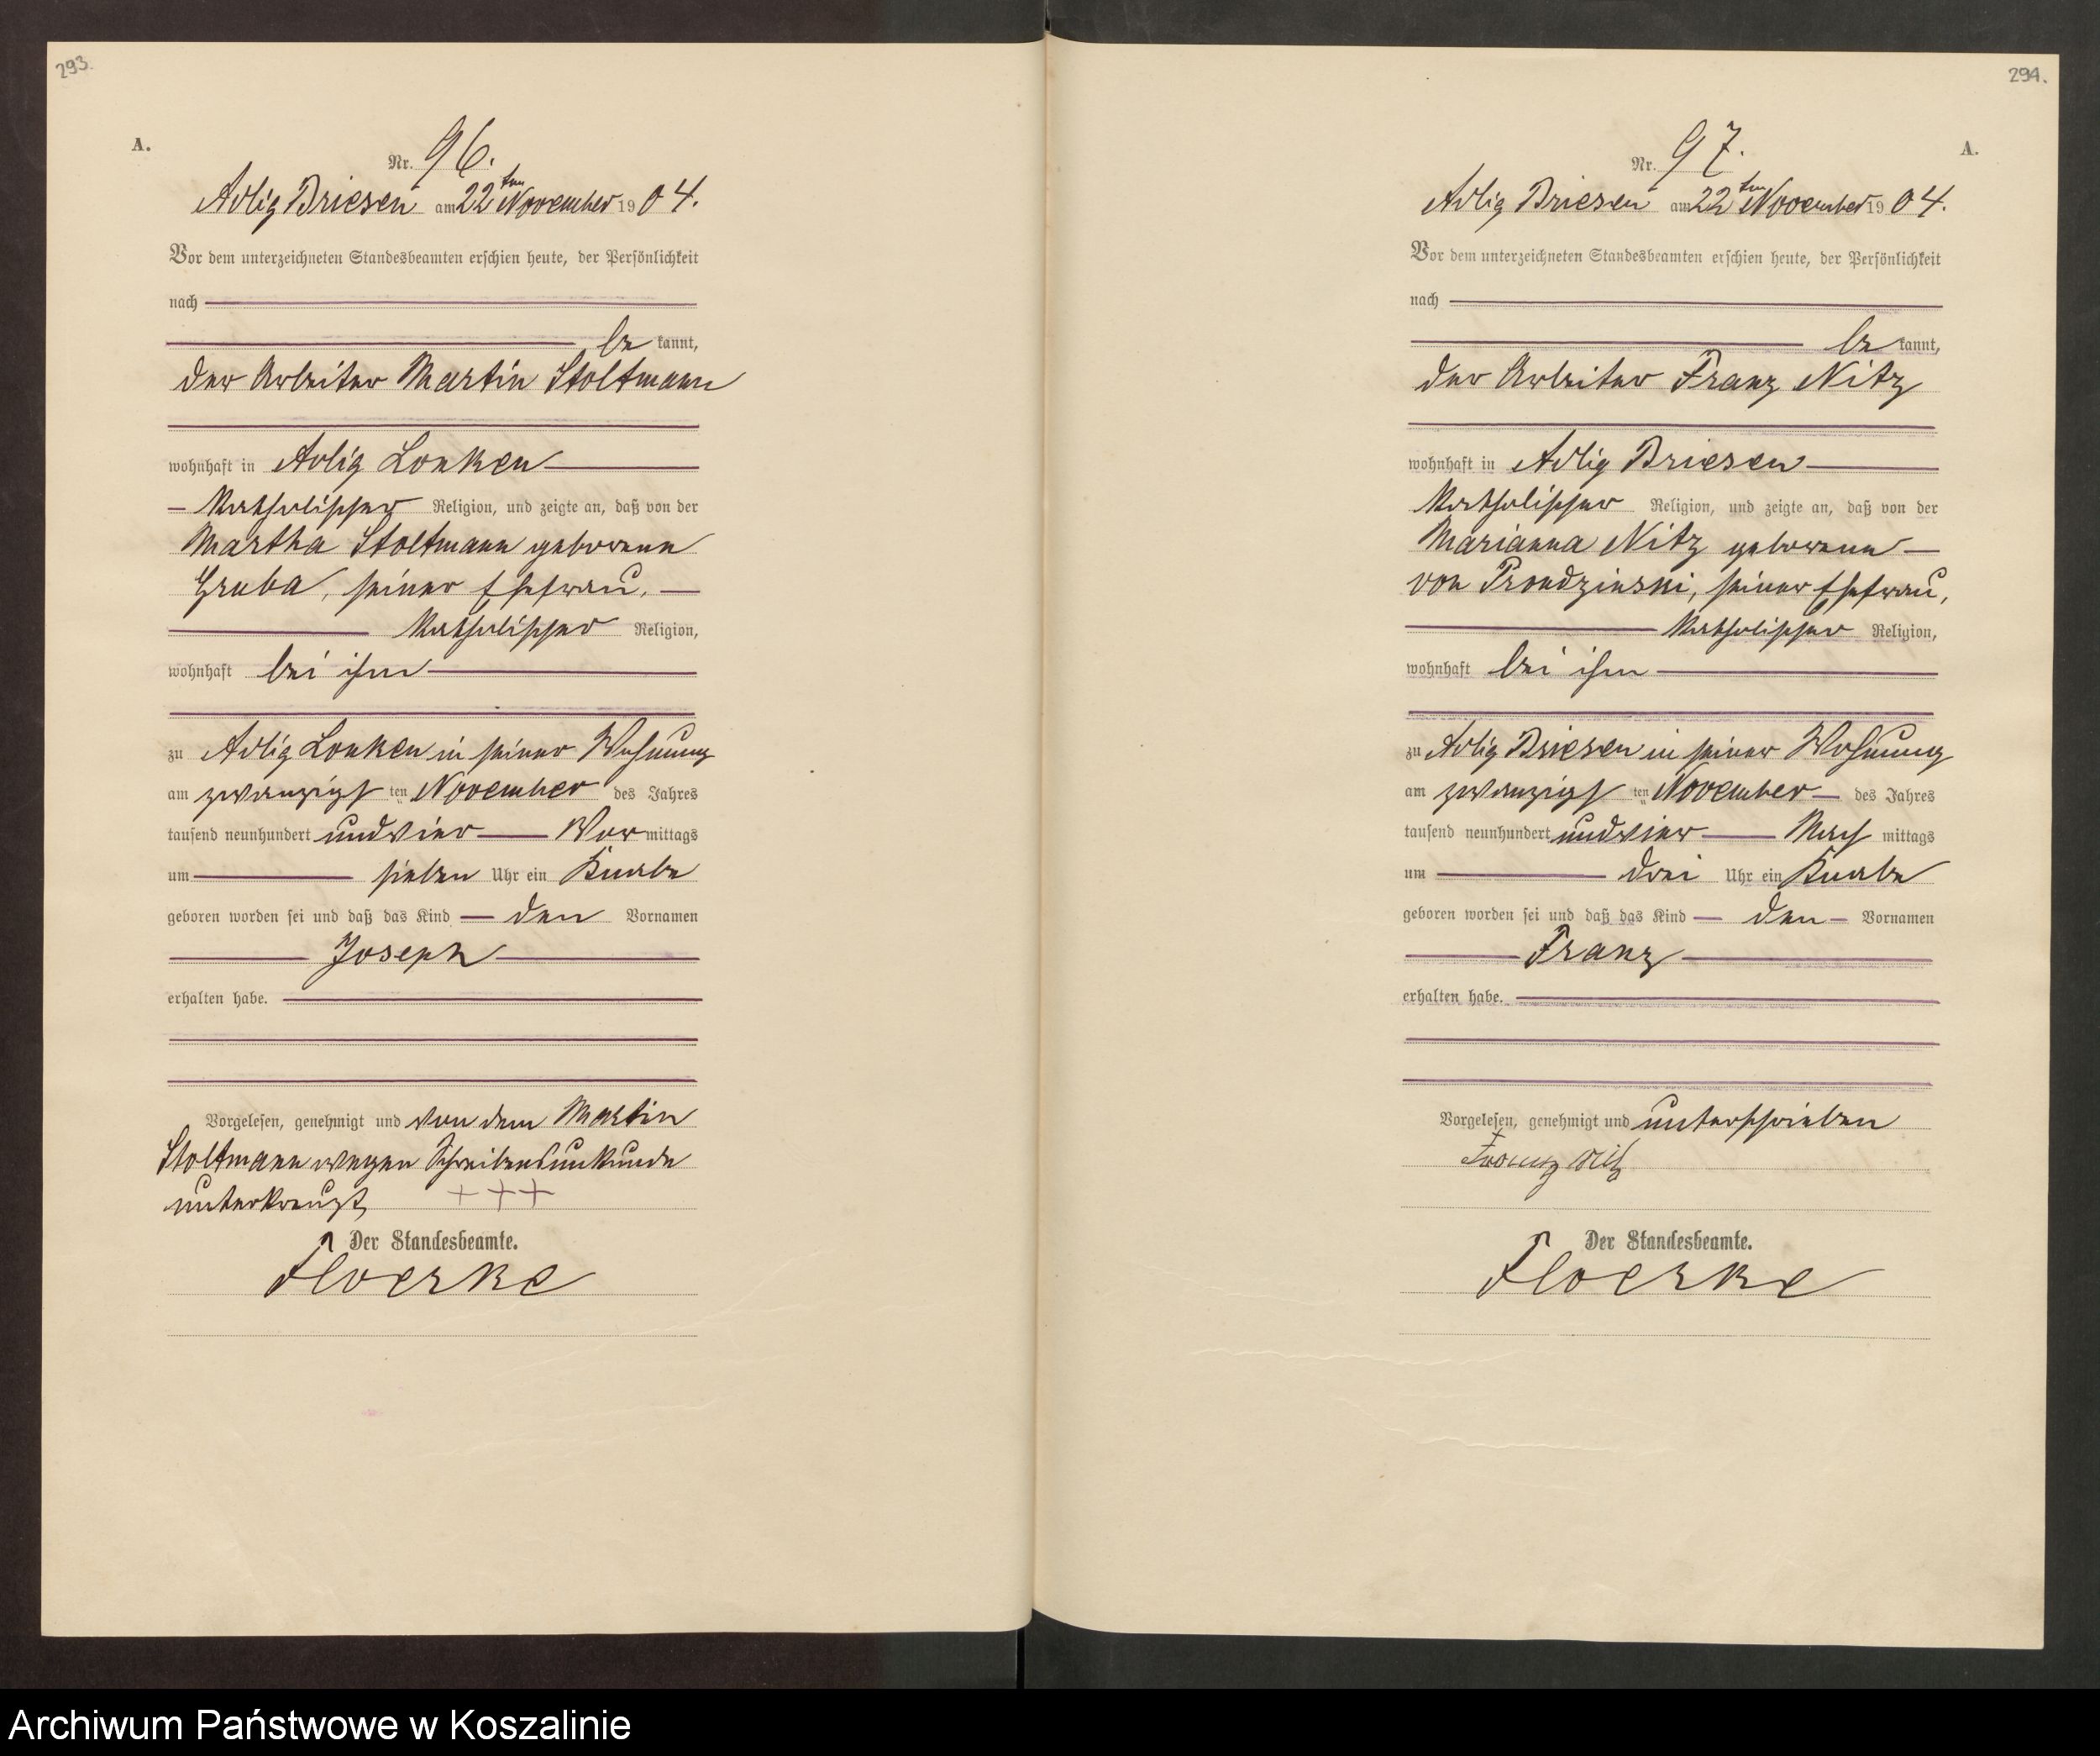 293.
A.
Nr. 96.
Adlig Briesen am 22ten November 1904.
Vor dem unterzeichneten Standesbeamten erschien heute, der Persönlichkeit
nach
be kannt,
der Arbeiter Martin Stoltmann
wohnhaft in Adlig Lonken
katholischer Religion, und zeigte an, daß von der
Martha Stoltmann geborenen
Gruba, seiner Ehefrau,
katholischer Religion,
wohnhaft bei ihm
zu Adlig Lonken in seiner Wohnung
am zwanzigs ten November des Jahres
tausend neunhundert und vier Vor mittags
um sieben Uhr ein Knabe
geboren worden sei und daß das Kind den Vornamen
Joseph
erhalten habe.
Vorgelesen, genehmigt und von dem Martin
Stoltmann wegen Schreibensunkunde
unterkreuzt +++
Der Standesbeamte.
Floerke
294.
A.
Nr. 97.
Adlig Briesen am 22ten November 1904.
Vor dem unterzeichneten Standesbeamten erschien heute, der Persönlichkeit
nach
be kannt,
der Arbeiter Franz Nitz
wohnhaft in Adlig Briesen
katholischer Religion, und zeigte an, daß von der
Marianna Nitz geborenen
von Prondzinski, seiner Ehefrau,
katholischer Religion,
wohnhaft bei ihm
zu Adlig Briesen in seiner Wohnung
am zwanzigs ten November des Jahres
tausend neunhundert und vier Nach mittags
um drei Uhr ein Knabe
geboren worden sei und daß das Kind den Vornamen
Franz
erhalten habe.
Vorgelesen, genehmigt und unterschrieben
Franz Nitz
Der Standesbeamte.
Floerke
Archiwum Państwowe w Koszalinie